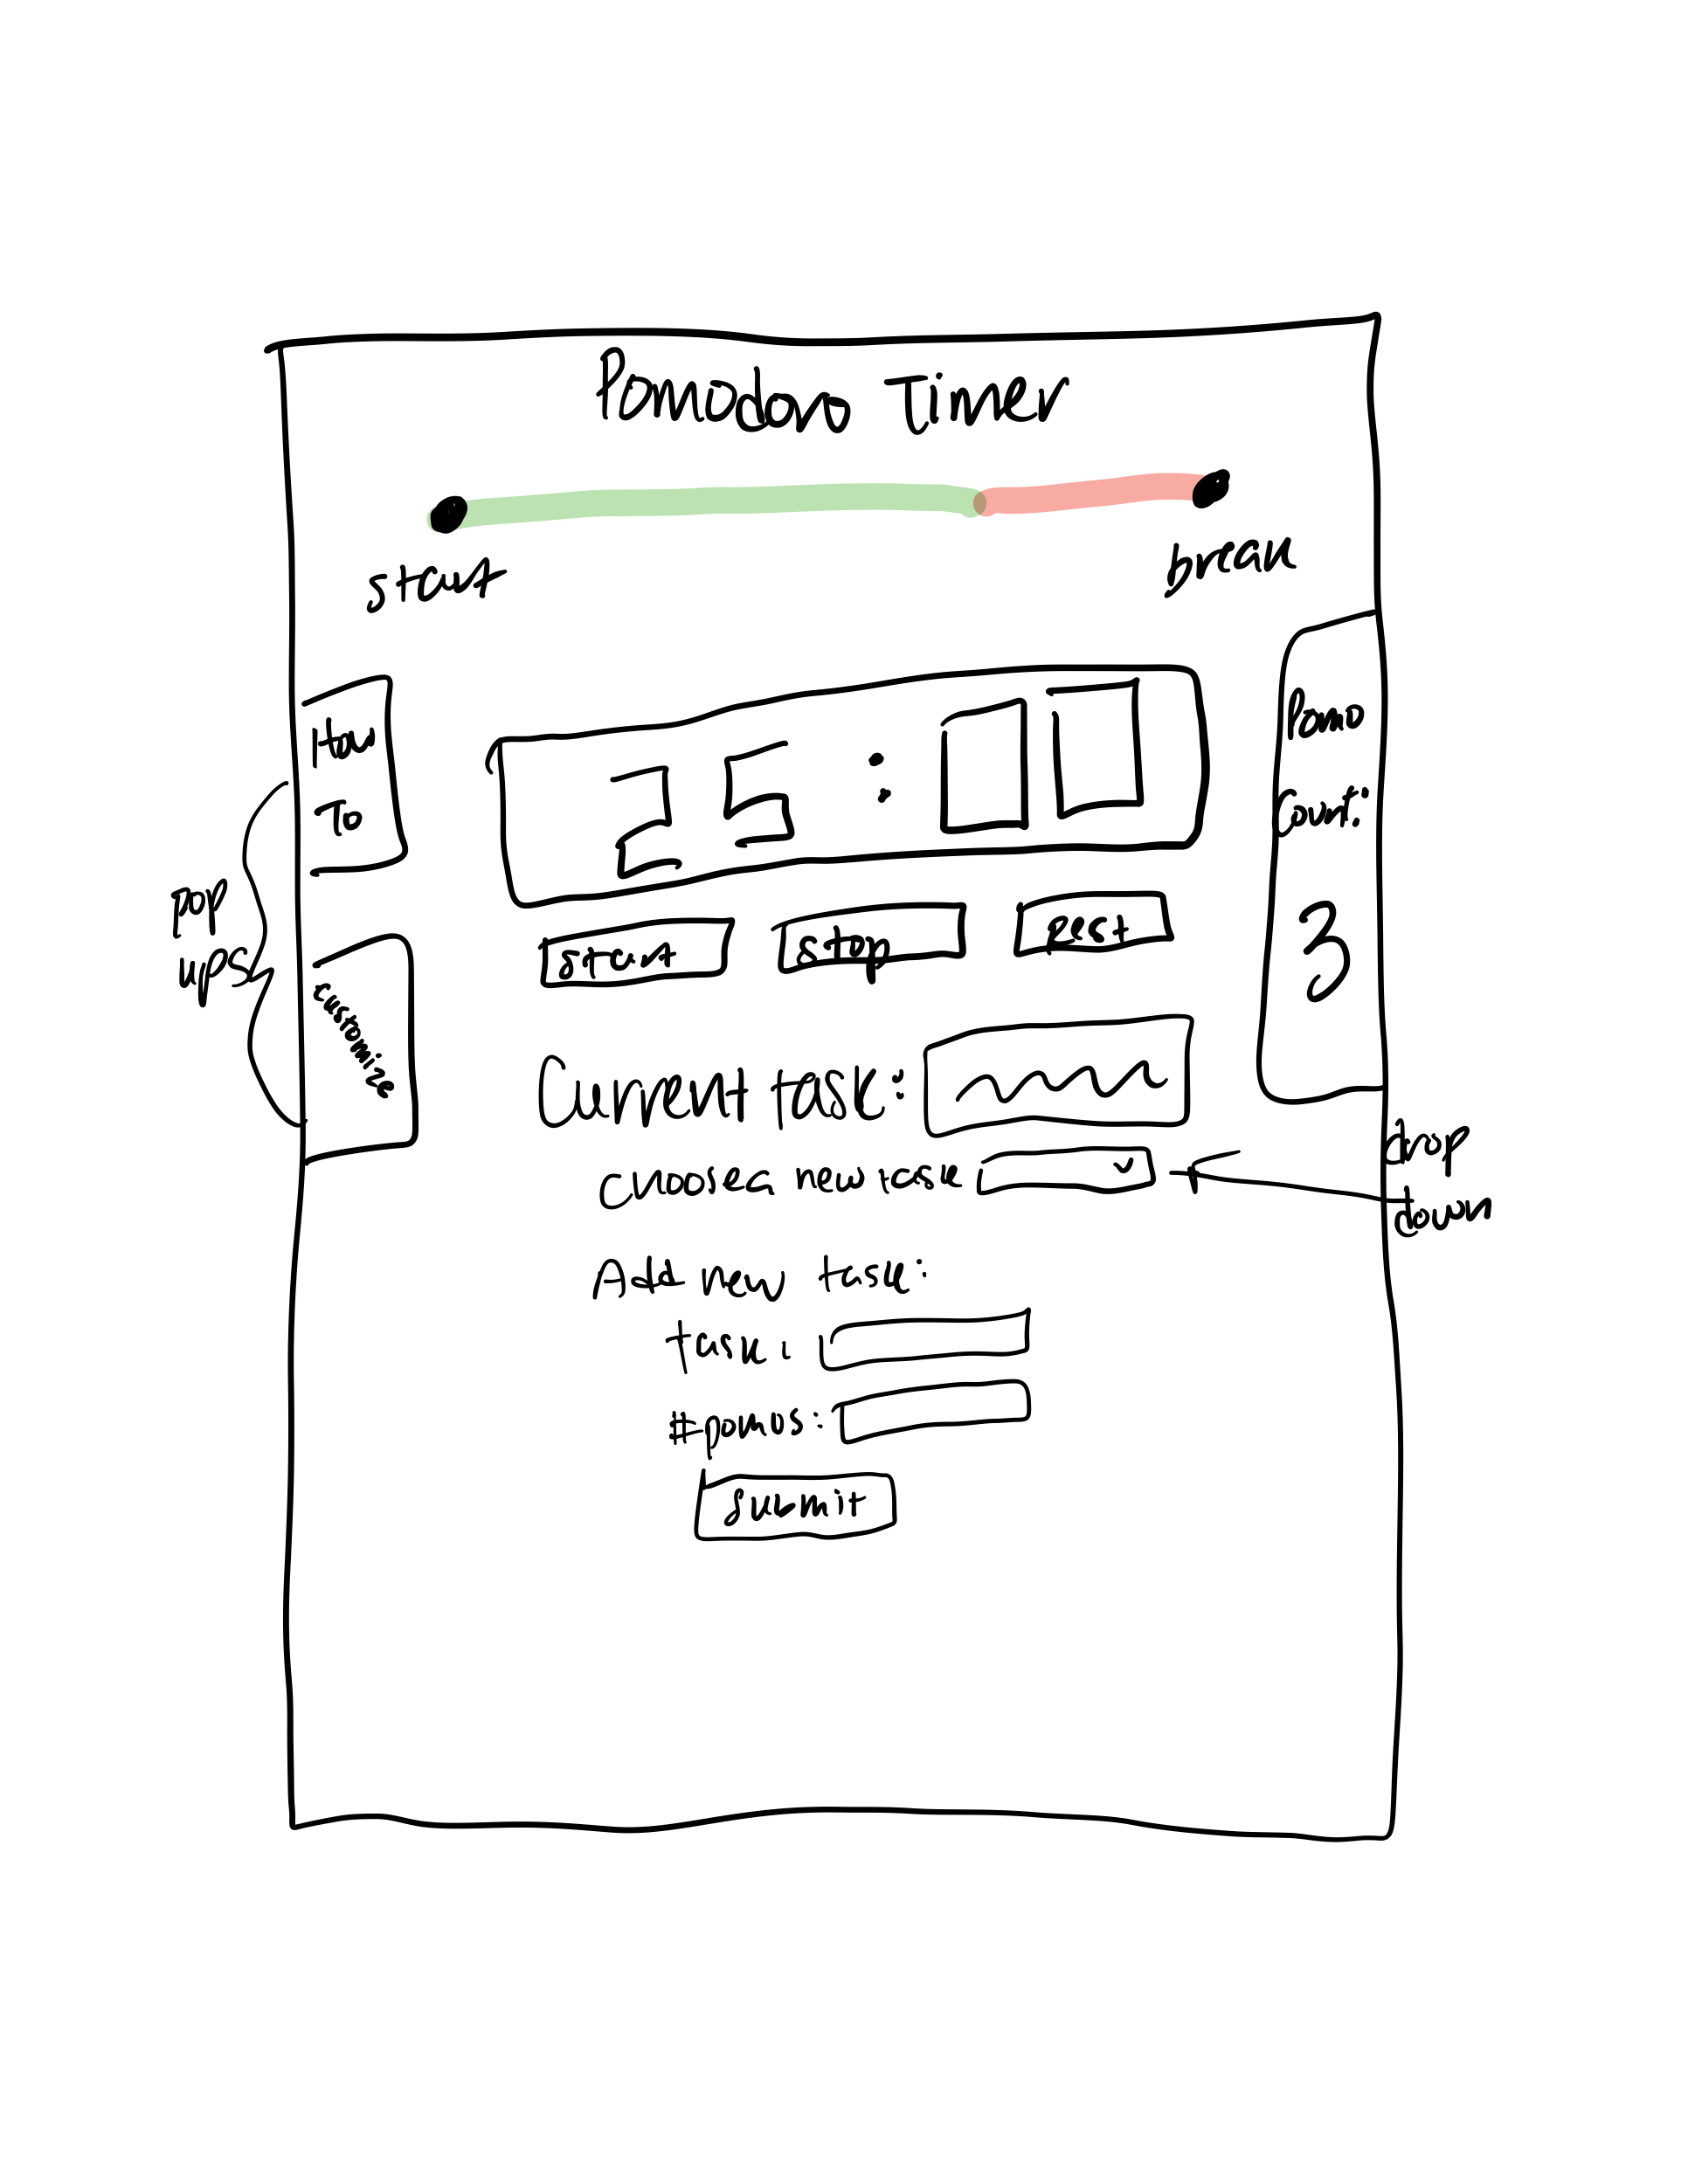 Pomodoro Timer
start
break
How
To
25:00
Pomo
Count:
3
pop
ups
start
stop
Rest
customize
Current task:
choose a new task
drop
down
Add new task:
task:
#pomos:
submit